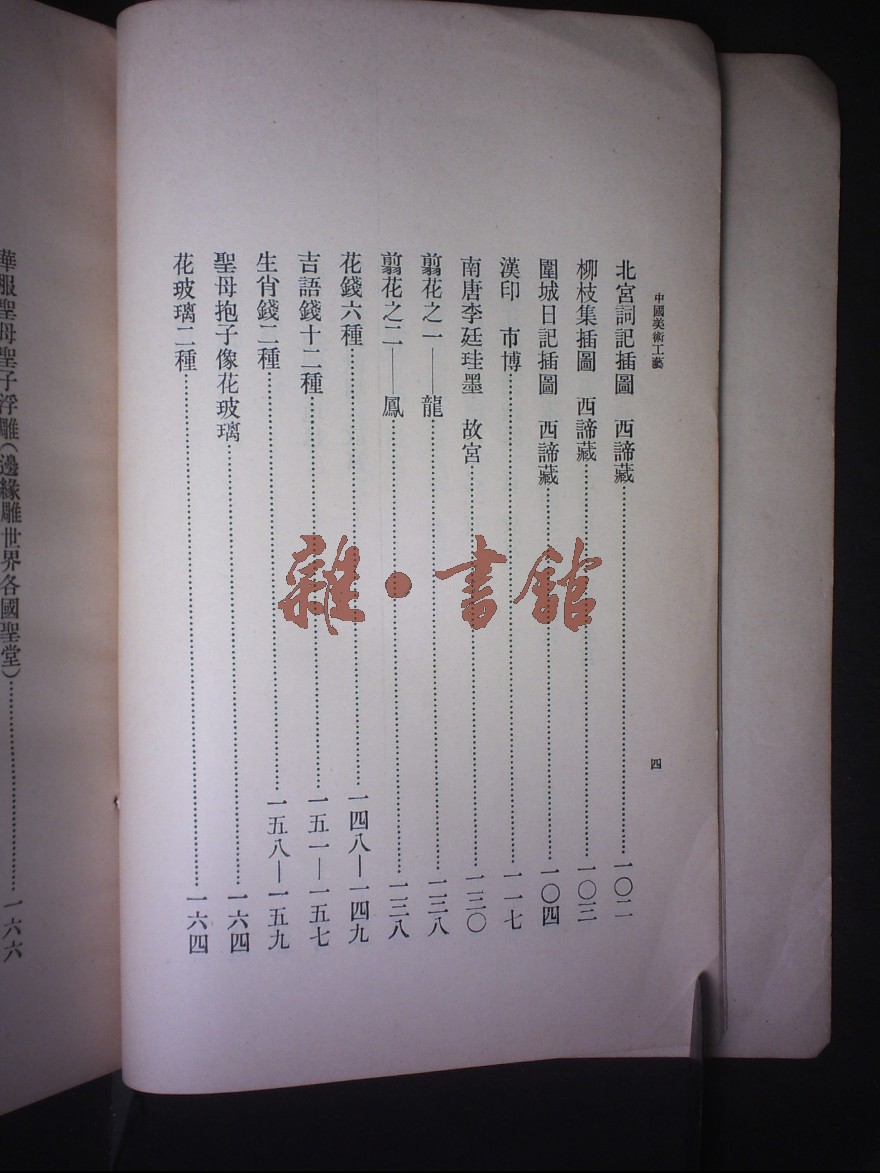 中國美術工藝
四
北宮詞記插圖　西諦藏……一〇二
柳枝集插圖　西諦藏……一〇三
圍城日記插圖　西諦藏……一〇四
漢印　市博……一一七
南唐李廷珪墨　故宮……一三〇
翦花之一——龍……一三八
翦花之二——鳳……一三八
花錢六種……一四八—一四九
吉語錢十二種……一五一—一五七
生肖錢二種……一五八—一五九
聖母抱子像花玻璃……一六四
花玻璃二種……一六四
華服聖母聖子浮雕(邊緣雕世界各國聖堂)……一六六
雜·書館